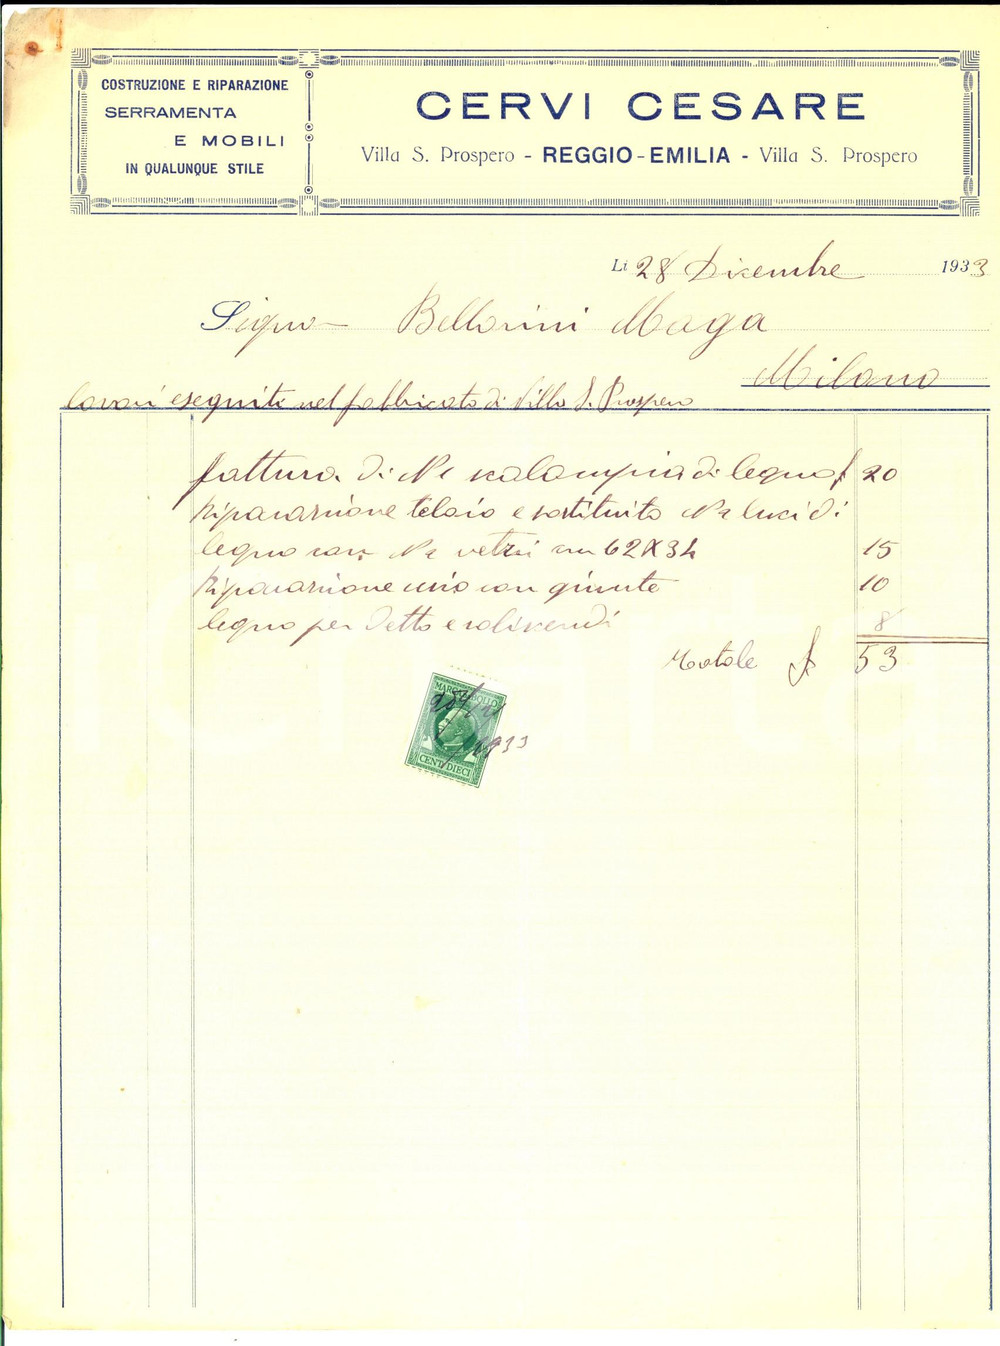 COSTRUZIONE E RIPARAZIONE
SERRAMENTA
E MOBILI
IN QUALUNQUE STILE
CERVI CESARE
Villa S. Prospero - REGGIO-EMILIA - Villa S. Prospero
Li 28 Dicembre 1933
Signor Bellorini Maga
Milano
lavori eseguiti nel fabbricato di Villa S. Prospero
fattura di N 1 scalampia di legno £ 20
Riparazione telaio e sostituito N 2 luci di
legno con N 2 vetri cm 62X34 15
Riparazione uscio con giunte 10
legno per detto e 8
Totale £ 53
MARCA BOLLO
28/12
1933
CENT. DIECI